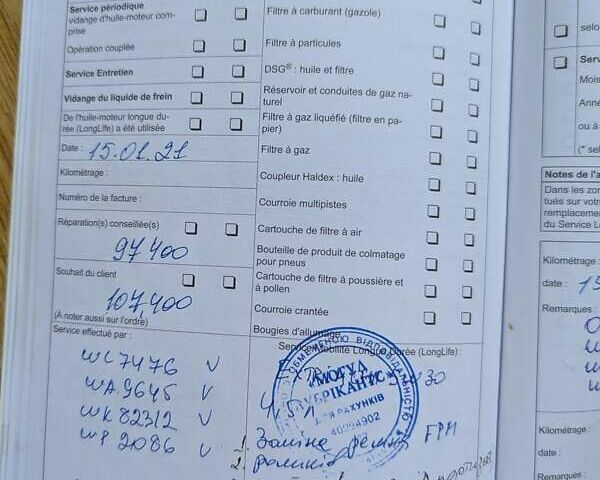 Service périodique
vidange d'huile-moteur com-
prise
Opération couplée
Service Entretien
Vidange du liquide de frein
De l'huile-moteur longue du-
rée (LongLife) a été utilisée
Date : 15.01.21
Kilométrage :
Numéro de la facture :
Réparation(s) conseillée(s)
97400
Souhait du client
107,400
(À noter aussi sur l'ordre)
Service effectué par :
WL7476 V
WA9645 V
WK82312 V
WP2086 V
Filtre à carburant (gazole)
Filtre à particules
DSG® : huile et filtre
Réservoir et conduites de gaz na-
turel
Filtre à gaz liquéfié (filtre en pa-
pier)
Filtre à gaz
Coupleur Haldex : huile
Courroie multipistes
Cartouche de filtre à air
Bouteille de produit de colmatage
pour pneus
Cartouche de filtre à poussière et
à pollen
Courroie crantée
Bougies d'allumage
Service Mobilité Longue Durée (LongLife) :
З ОБМЕЖЕНОЮ ВІДПОВІДАЛЬНІСТЮ
30
4.5л
1. Заміна ремня ГРМ
2.
selo
Serv
Mois
Anné
ou à
(* sel
Notes de l'a
Dans les zon
tués sur votr
remplaceme
du Service L
Kilométrage :
date : 15
Remarques :
Kilométrage :
date :
Remarques :